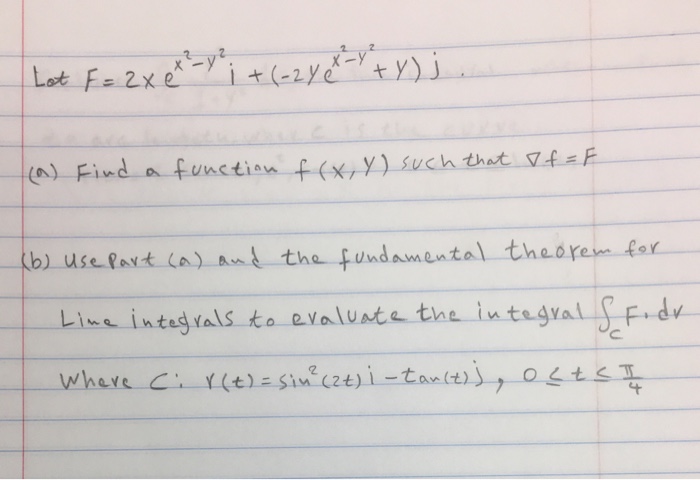 Let F = 2x e^{x²-y²} i + (-2y e^{x²-y²} + y) j .
(a) Find a function f(x,y) such that ∇f = F
(b) use part (a) and the fundamental theorem for
Line integrals to evaluate the integral ∫_C F. dr
Where C: r(t) = sin²(2t) i - tan(t) j, 0 ≤ t ≤ π/4